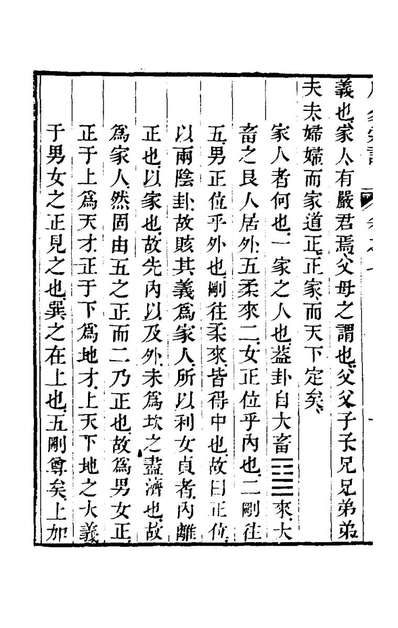 義也家人有嚴君焉父母之謂也父父子子兄兄弟弟
夫夫婦婦而家道正正家而天下定矣
家人者何也一家之人也蓋卦自大畜䷙來大
畜之艮人居外五柔來二女正位乎內也二剛往
五男正位乎外也剛往柔來皆得中也故曰正位
以兩陰卦故賅其義爲家人所以利女貞者內離
正也以家也故先內以及外未爲坎之盡濟也故
爲家人然固由五之正而二乃正也故爲男女正
正于上爲天才正于下爲地才上天下地之大義
于男女之正見之也巽之在上也五剛尊矣上加